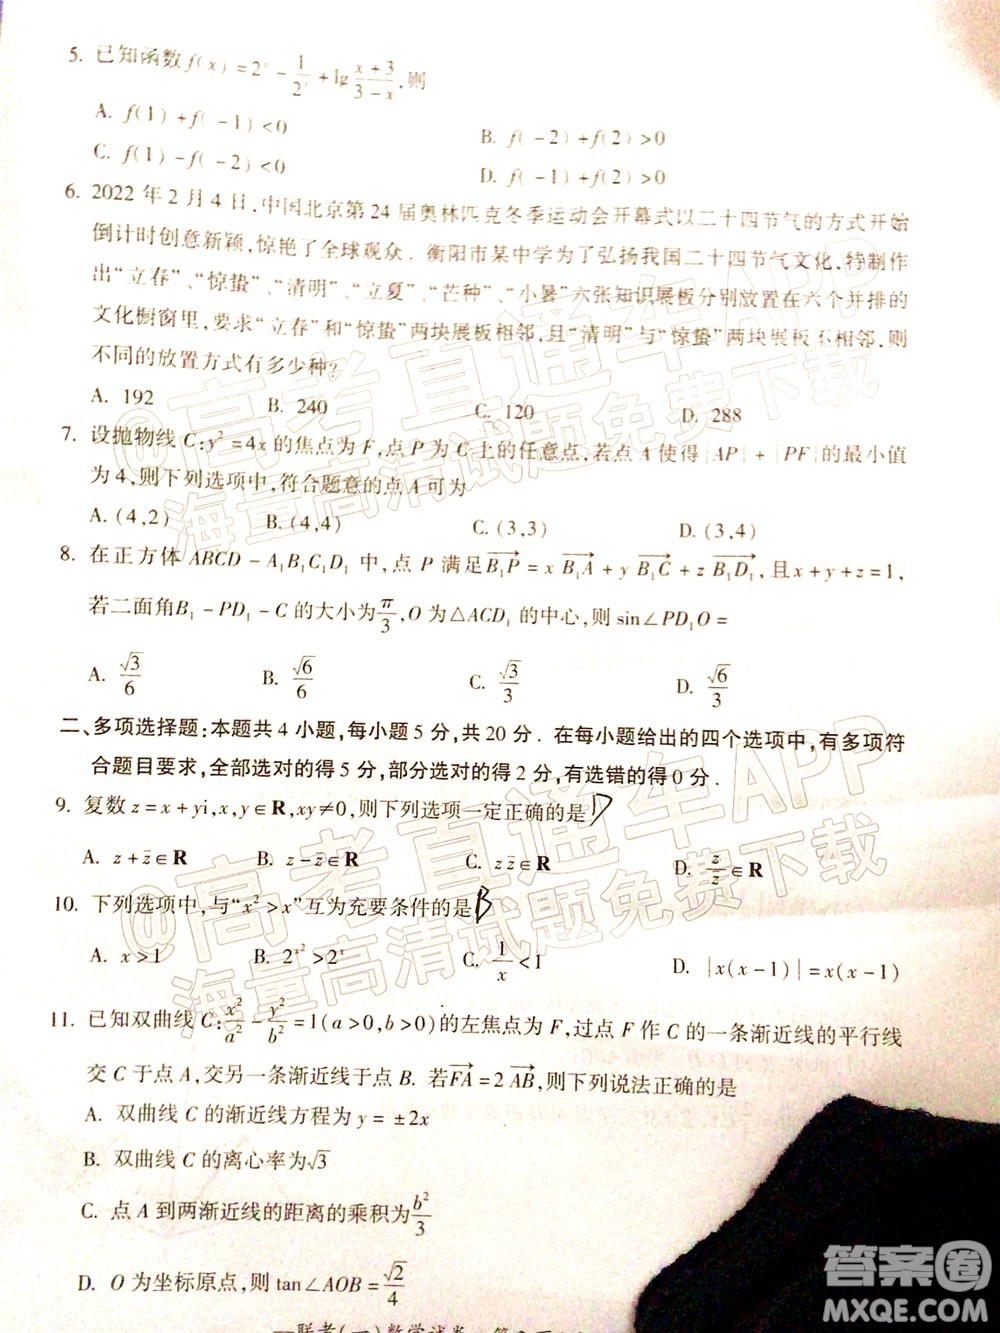 5. 已知函数 f(x)=2^x-\frac{1}{2^x}+lg\frac{x+3}{3-x},则
A. f(1)+f(-1)<0
B. f(-2)+f(2)>0
C. f(1)-f(-2)<0
D. f(-1)+f(2)>0
6. 2022 年 2 月 4 日,中国北京第 24 届奥林匹克冬季运动会开幕式以二十四节气的方式开始
倒计时创意新颖,惊艳了全球观众. 衡阳市某中学为了弘扬我国二十四节气文化,特制作
出“立春”、“惊蛰”、“清明”、“立夏”、“芒种”、“小暑”六张知识展板分别放置在六个并排的
文化橱窗里,要求“立春”和“惊蛰”两块展板相邻,且“清明”与“惊蛰”两块展板不相邻,则
不同的放置方式有多少种?
A. 192
B. 240
C. 120
D. 288
7. 设抛物线 C:y²=4x 的焦点为 F,点 P 为 C 上的任意点,若点 A 使得 |AP|+|PF| 的最小值
为 4,则下列选项中,符合题意的点 A 可为
A. (4,2)
B. (4,4)
C. (3,3)
D. (3,4)
8. 在正方体 ABCD-A₁B₁C₁D₁ 中,点 P 满足\overrightarrow{B₁P}=x\overrightarrow{B₁A}+y\overrightarrow{B₁C}+z\overrightarrow{B₁D₁},且 x+y+z=1,
若二面角B₁-PD₁-C 的大小为\frac{π}{3},O 为 △ACD₁ 的中心,则 sin∠PD₁O=
A. \frac{√3}{6}
B. \frac{√6}{6}
C. \frac{√3}{3}
D. \frac{√6}{3}
二、多项选择题:本题共 4 小题,每小题 5 分,共 20 分. 在每小题给出的四个选项中,有多项符
合题目要求,全部选对的得 5 分,部分选对的得 2 分,有选错的得 0 分.
9. 复数 z=x+yi,x,y∈R,xy≠0,则下列选项一定正确的是 D
A. z+\bar{z}∈R
B. z-\bar{z}∈R
C. z\bar{z}∈R
D. \frac{z}{\bar{z}}∈R
10. 下列选项中,与“x²>x”互为充要条件的是 B
A. x>1
B. 2^{x²}>2^x
C. \frac{1}{x}<1
D. |x(x-1)|=x(x-1)
11. 已知双曲线 C:\frac{x²}{a²}-\frac{y²}{b²}=1(a>0,b>0)的左焦点为 F,过点 F 作 C 的一条渐近线的平行线
交 C 于点 A,交另一条渐近线于点 B. 若\overrightarrow{FA}=2\overrightarrow{AB},则下列说法正确的是
A. 双曲线 C 的渐近线方程为 y=±2x
B. 双曲线 C 的离心率为√3
C. 点 A 到两渐近线的距离的乘积为\frac{b²}{3}
D. O 为坐标原点,则 tan∠AOB=\frac{√2}{4}
@高考直通车APP
海量高清试题免费下载
@高考直通车APP
海量高清试题免费下载
答案圈
MXQE.COM